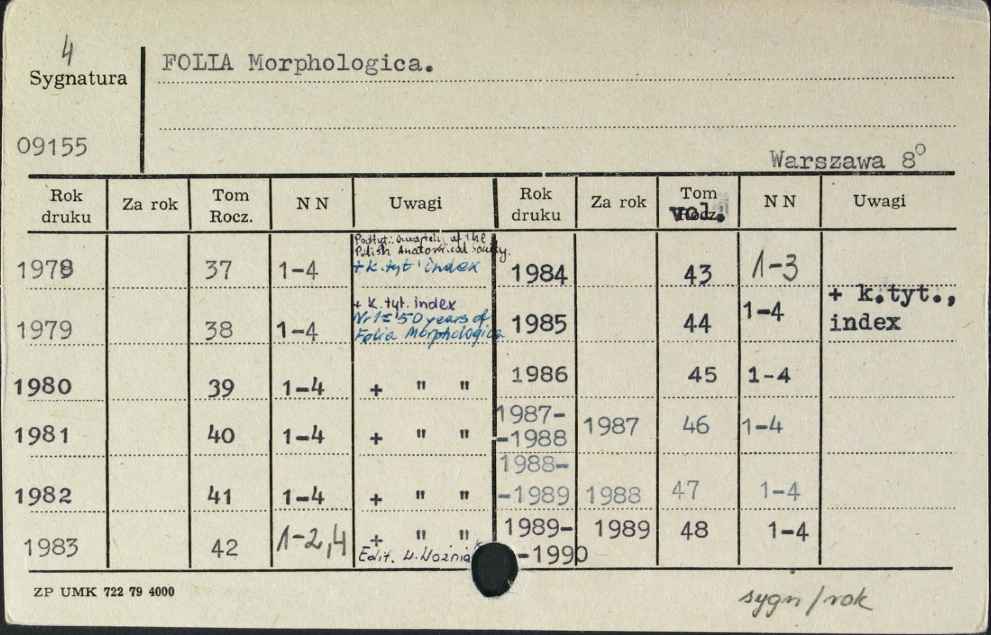 4
Sygnatura
FOLIA Morphologica.
09155
Warszawa 8°
Rok druku Za rok Tom Rocz. NN Uwagi Rok druku Za rok Tom vol. NN Uwagi
Polish Anatomical
1978 37 1-4 + k.tyt. index 1984 43 1-3
+ k.tyt. index
1979 38 1-4 Nr 1 = 50 years of Folia Morphologica 1985 44 1-4 + k.tyt., index
1980 39 1-4 + " " 1986 45 1-4
1981 40 1-4 + " " 1987-
-1988 1987 46 1-4
1982 41 1-4 + " " 1988-
-1989 1988 47 1-4
1983 42 1-2,4 + " " 1989-
-1990 1989 48 1-4
Edit.
ZP UMK 722 79 4000
sygn/rok